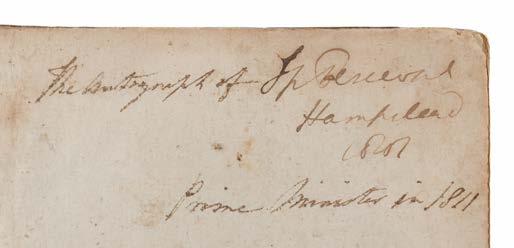 The Autograph of Sp Perceval
Hampstead
Prime Minister in 1811